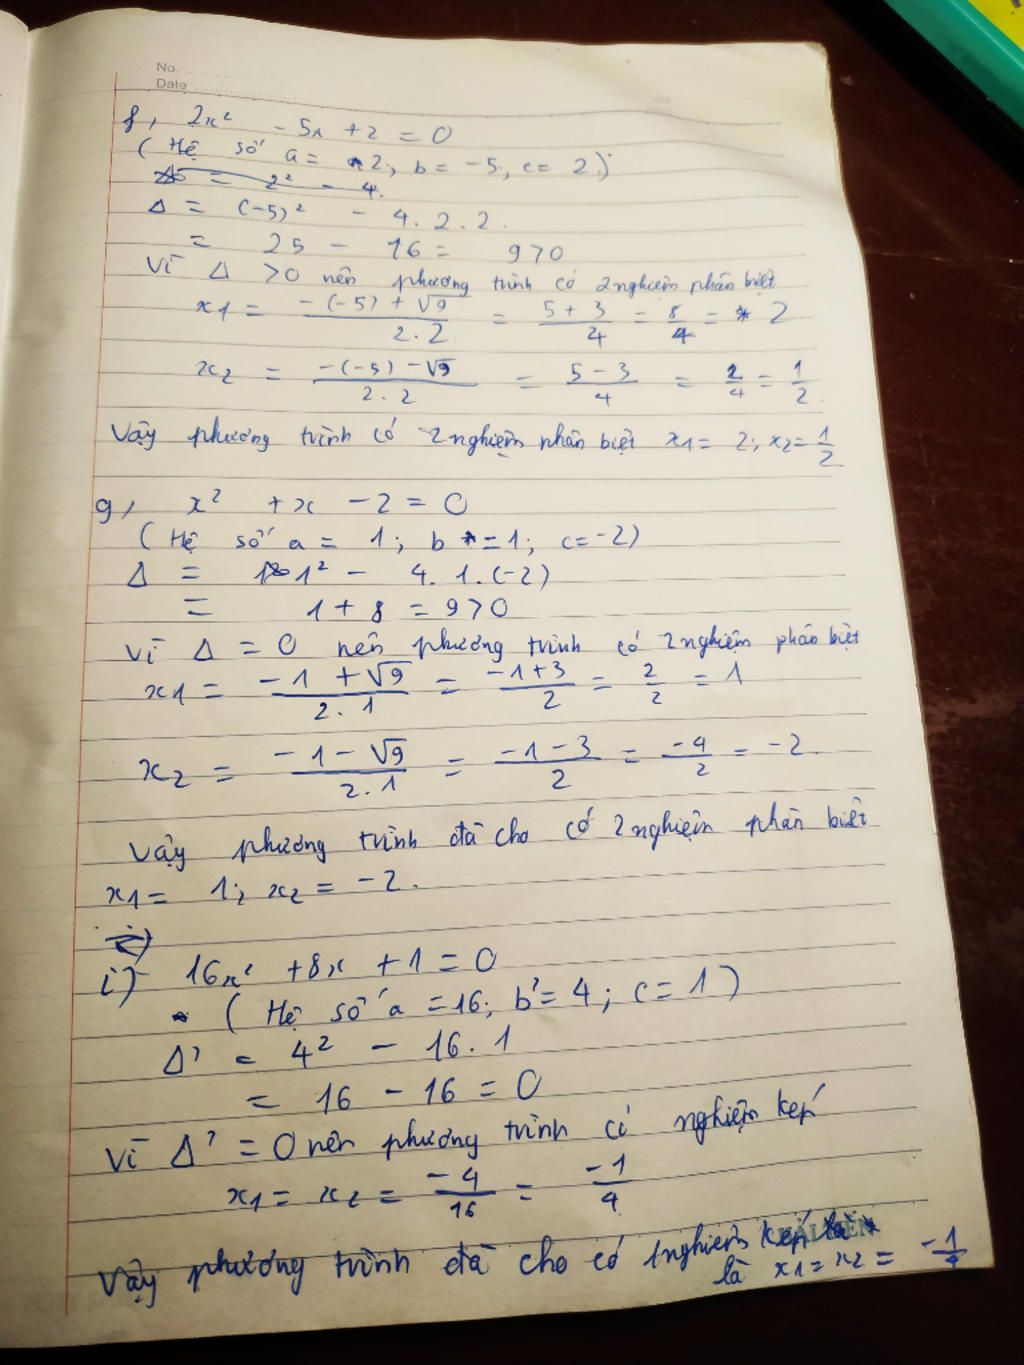 No.
Date
f, 2x² - 5x + 2 = 0
( Hệ số a = 2; b = -5, c = 2 )
Δ = 2² - 4.
Δ = (-5)² - 4. 2. 2.
= 25 - 16 = 9 > 0
Vì Δ > 0 nên phương trình có 2 nghiệm phân biệt
x1 = -(-5) + √9 / 2. 2 = 5 + 3 / 4 = 8/4 = 2
x2 = -(-5) - √9 / 2. 2 = 5 - 3 / 4 = 2/4 = 1/2.
Vậy phương trình có 2 nghiệm phân biệt x1 = 2; x2 = 1/2
g, x² + x - 2 = 0
( Hệ số a = 1; b = 1; c = -2)
Δ = 1² - 4. 1. (-2)
= 1 + 8 = 9 > 0
Vì Δ = 0 nên phương trình có 2 nghiệm phân biệt
x1 = -1 + √9 / 2. 1 = -1 + 3 / 2 = 2/2 = 1
x2 = -1 - √9 / 2. 1 = -1 - 3 / 2 = -4/2 = -2.
Vậy phương trình đã cho có 2 nghiệm phân biệt
x1 = 1; x2 = -2.
i) 16x² + 8x + 1 = 0
( Hệ số a = 16; b' = 4; c = 1 )
Δ' = 4² - 16. 1
= 16 - 16 = 0
Vì Δ' = 0 nên phương trình có nghiệm kép
x1 = x2 = -4/16 = -1/4
Vậy phương trình đã cho có 1 nghiệm kép
là x1 = x2 = -1/4